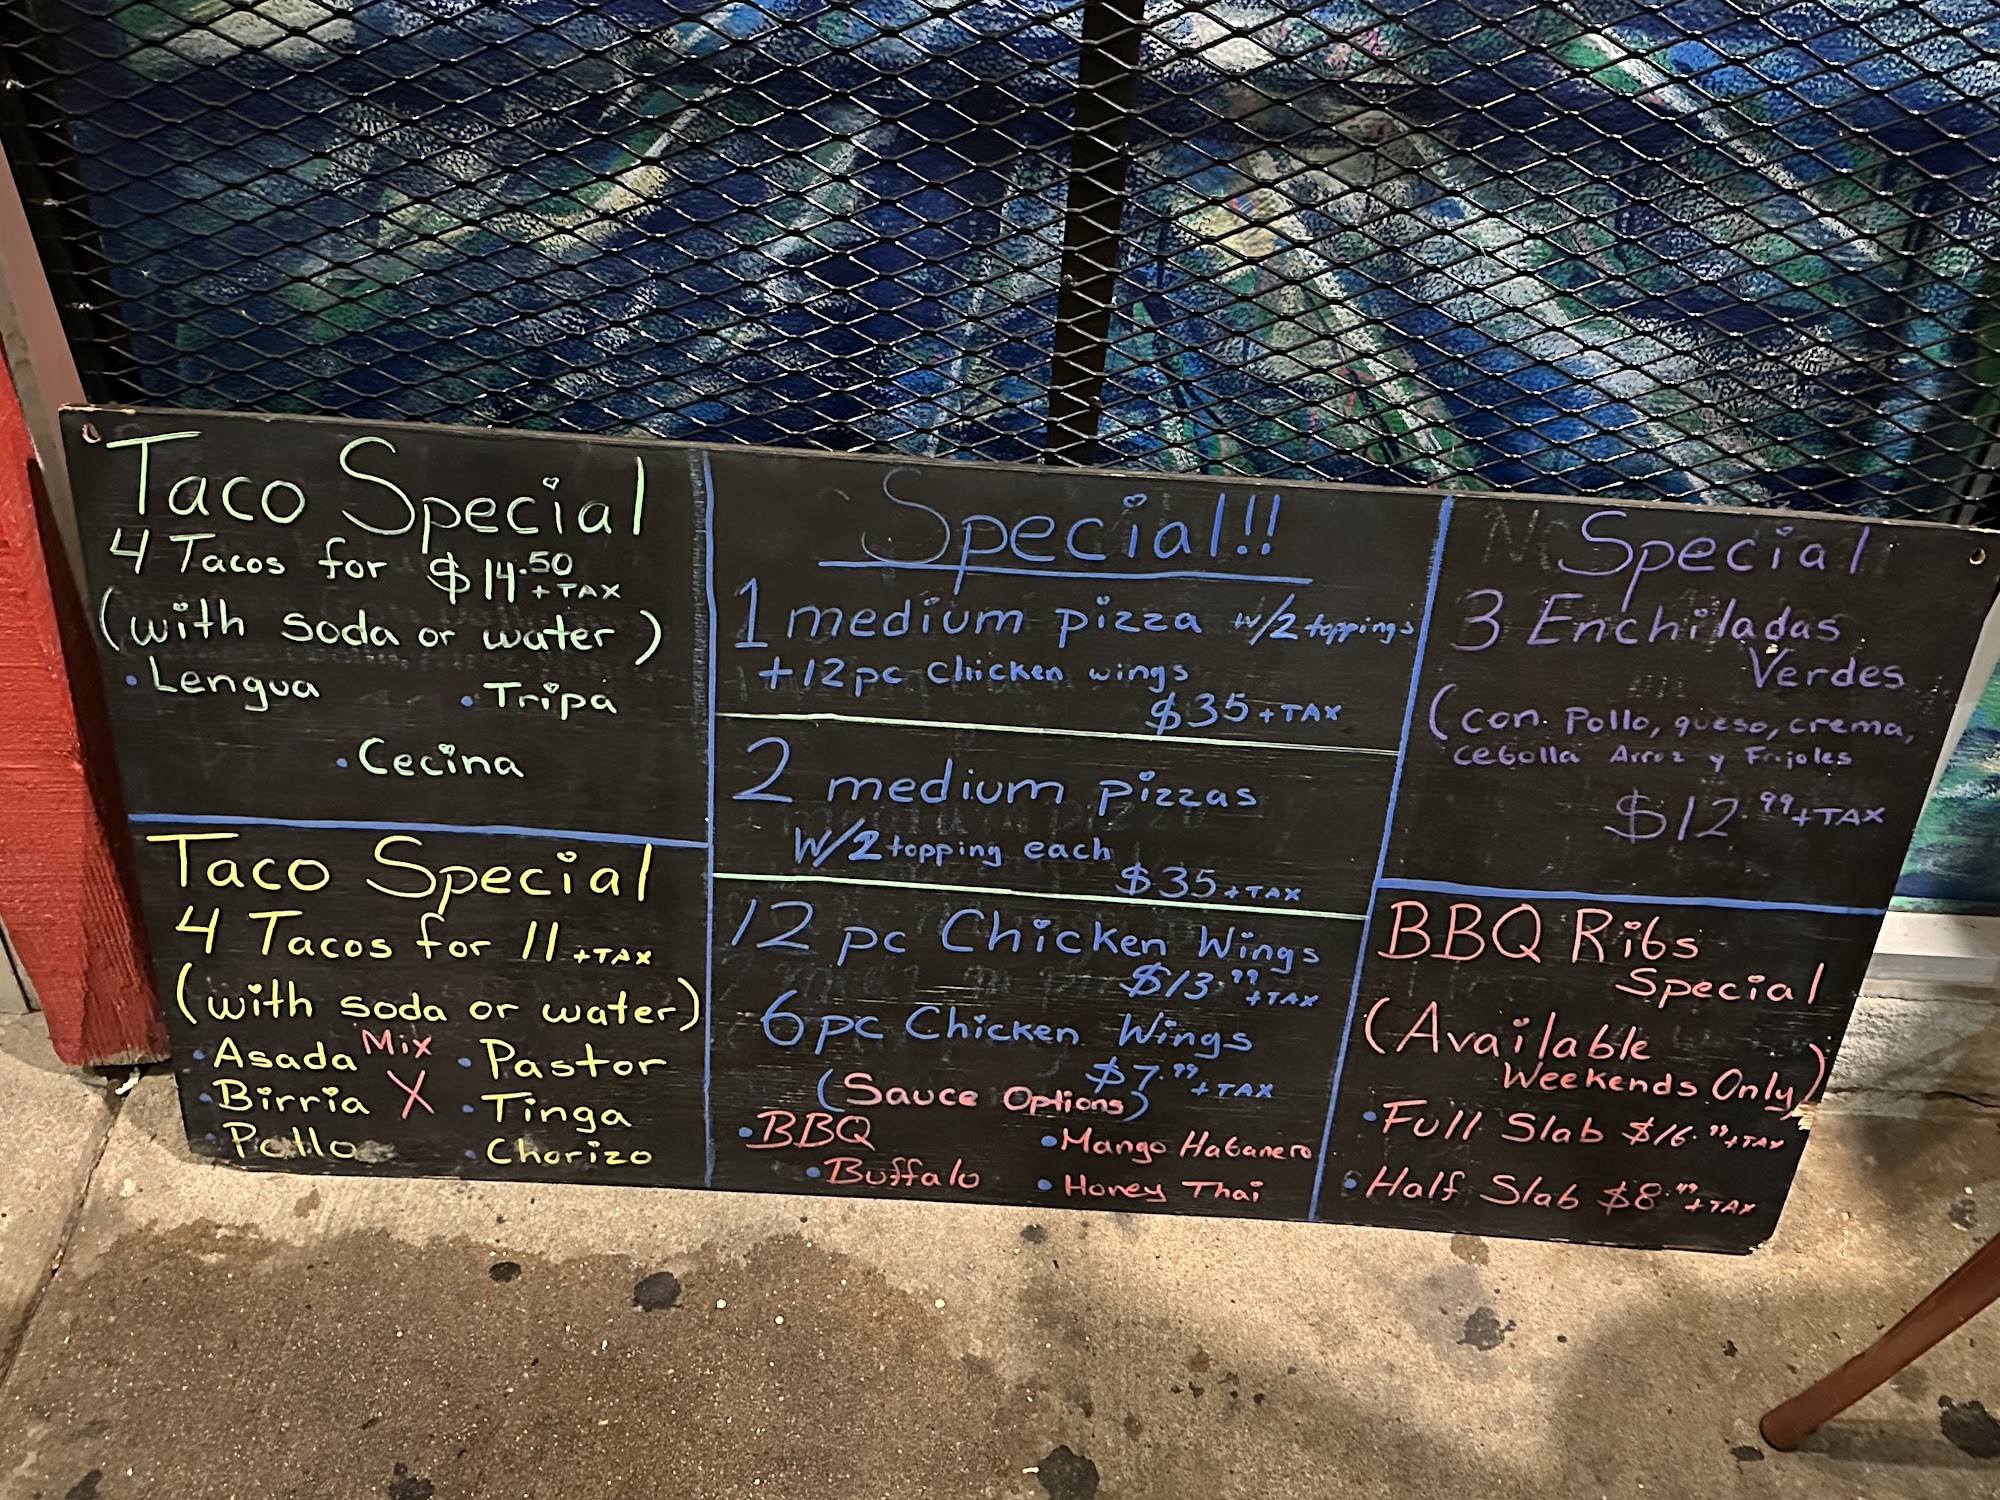 Taco Special
4 Tacos for $14.50
+TAX
(with soda or water)
• Lengua • Tripa
• Cecina
Taco Special
4 Tacos for 11 +TAX
(with soda or water)
• Asada Mix • Pastor
• Birria X • Tinga
• Pollo • Chorizo
Special!!
1 medium pizza w/2 toppings
+12pc Chicken wings
$35+TAX
2 medium pizzas
w/2 topping each
$35+TAX
12 pc Chicken Wings
$13.99+TAX
6pc Chicken Wings
$7.99+TAX
(Sauce Options)
• BBQ • Mango Habanero
• Buffalo • Honey Thai
Special
3 Enchiladas
Verdes
(con. Pollo, queso, crema,
cebolla Arroz y Frijoles
$12.99+TAX
BBQ Ribs
Special
(Available
Weekends Only)
• Full Slab $16.99+TAX
• Half Slab $8.99+TAX